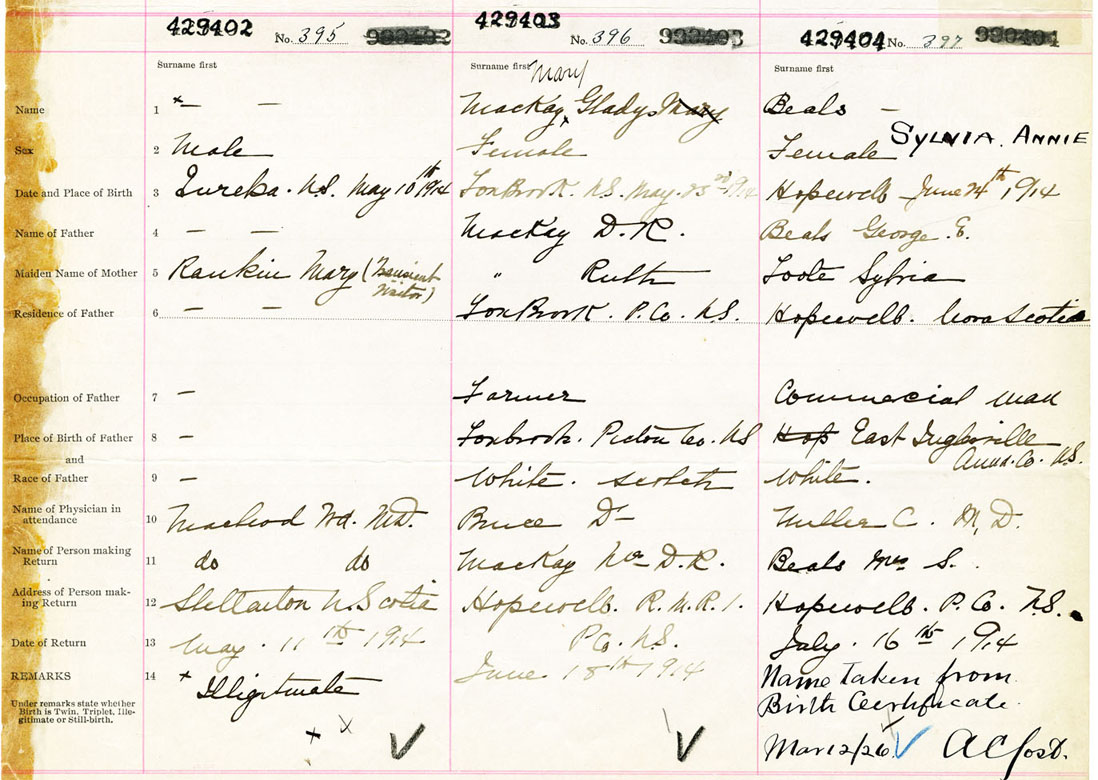 429402 No. 395
429403 No. 396
429404 No. 397
Surname first Surname first Surname first
Mary
Name 1 x — — Mackay Gladys Mary Beals —
SYLVIA. ANNIE
Sex 2 Male Female Female
Date and Place of Birth 3 Eureka. N.S. May 10th 1914 FoxBrook. N.S. May. 23rd 1914 Hopewell June 24th 1914
Name of Father 4 — — MacKay D.R. Beals George. E.
Maiden Name of Mother 5 Rankin Mary (Transient " Ruth Foote Sylvia
Visitor)
Residence of Father 6 — — FoxBrook. P.Co. N.S. Hopewell. Nova Scotia
Occupation of Father 7 — Farmer Commercial man
Place of Birth of Father 8 — Foxbrook. Pictou Co. NS Hop East Inglisville
and Anna. Co. N.S.
Race of Father 9 — White. scotch White.
Name of Physician in
attendance 10 Macleod MD. Bruce Dr Miller C. M.D.
Name of Person making
Return 11 do do MacKay Mrs D.R. Beals Mrs S.
Address of Person mak-
ing Return 12 Stellarton N. Scotia Hopewell. R.M.R.1. Hopewell. P.Co. N.S.
P.Co. N.S.
Date of Return 13 May. 11th 1914 June 18th 1914 July. 16th 1914
REMARKS 14 + Illigitmate Name Taken from
Under remarks state whether
Birth is Twin, Triplet, Ille-
gitimate or Still-birth.
Birth Certificate.
Mar 12/26 A C Jost.